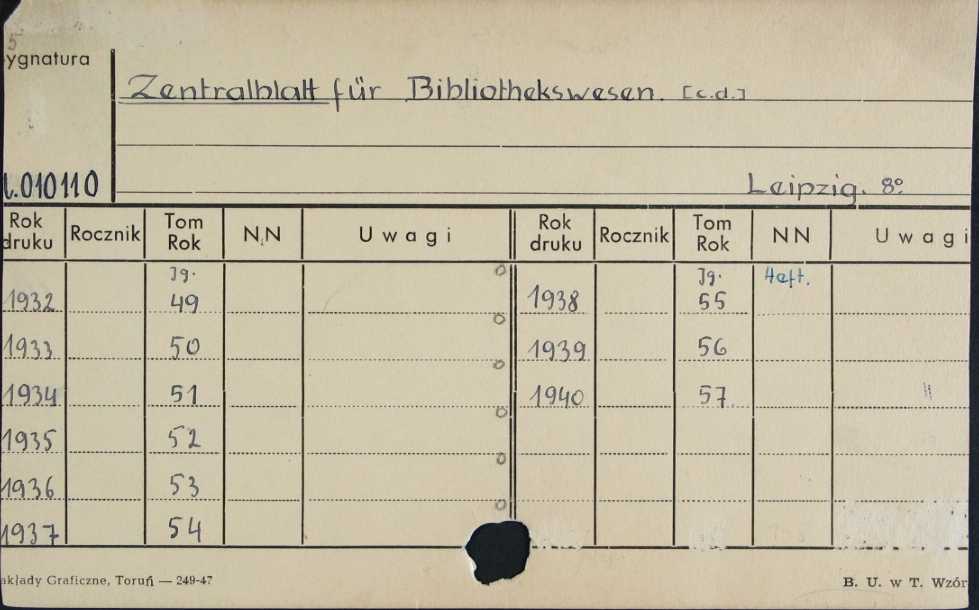 5
ygnatura
Zentralblatt für Bibliothekswesen. [c.d.]
010110
Leipzig. 8º
Rok druku Rocznik Tom Rok N.N Uwagi Rok druku Rocznik Tom Rok NN Uwagi
Jg. Jg. Heft.
1932 49 1938 55
1933 50 1939 56
1934 51 1940 57 "
1935 52
1936 53
1937 54
akłady Graficzne, Toruń — 249-47 B. U. w T. Wzór